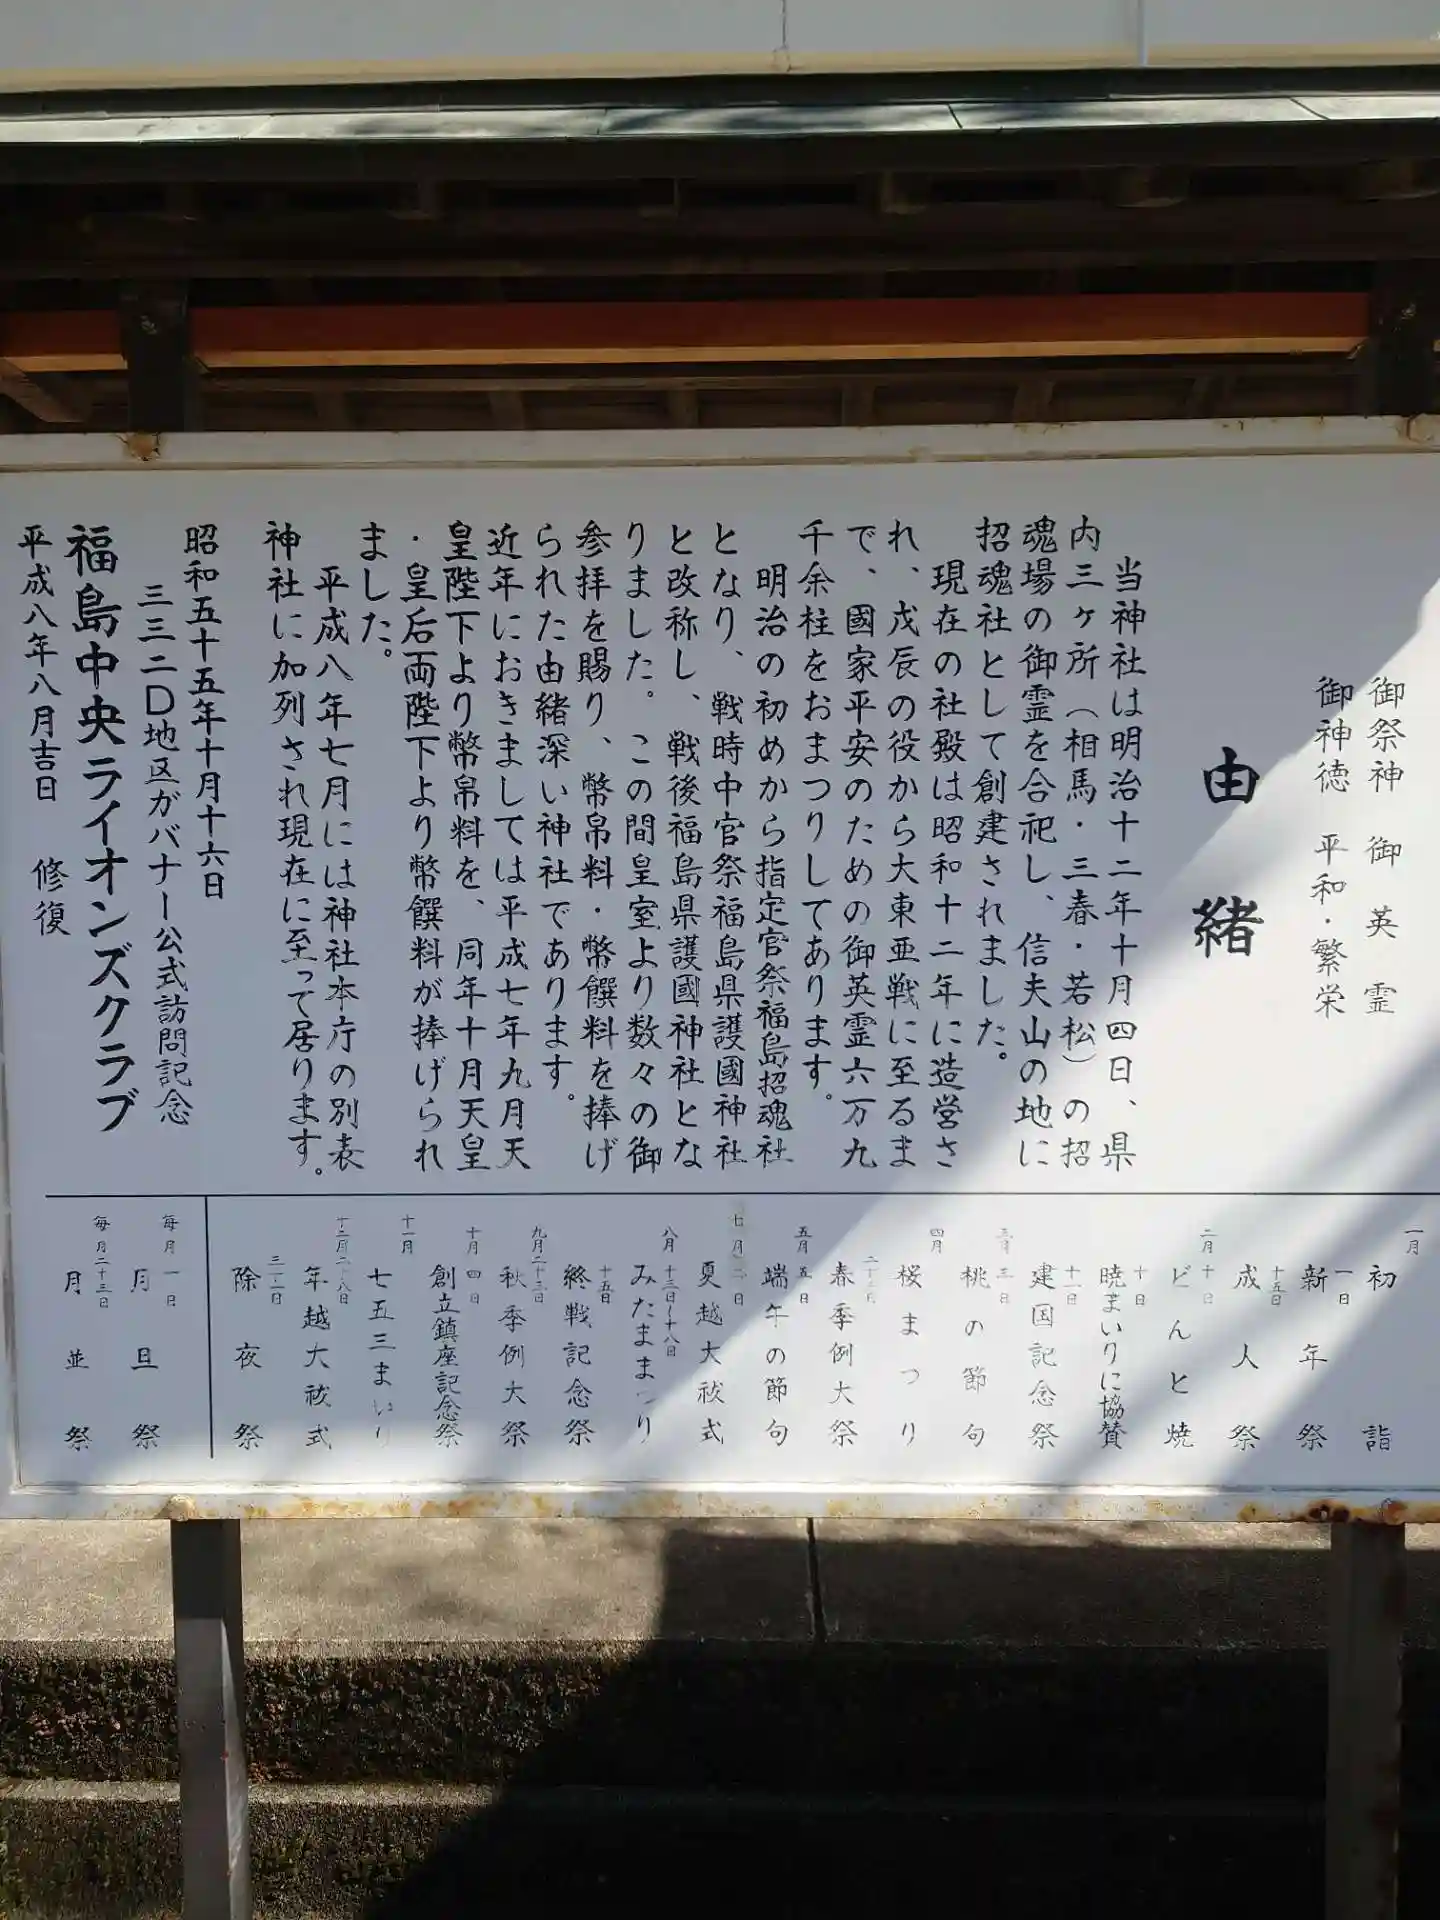 御祭神 御英霊
御神徳 平和・繁栄
由緒
当神社は明治十二年十月四日、県
内三ヶ所（相馬・三春・若松）の招
魂場の御霊を合祀し、信夫山の地に
招魂社として創建されました。
現在の社殿は昭和十二年に造営さ
れ、戊辰の役から大東亜戦に至るま
で、國家平安のための御英霊六万九
千余柱をおまつりしてあります。
明治の初めから指定官祭福島招魂社
となり、戦時中官祭福島県護國神社
と改称し、戦後福島県護國神社とな
りました。この間皇室より数々の御
参拝を賜り、幣帛料・幣饌料を捧げ
られた由緒深い神社であります。
近年におきましては平成七年九月天
皇陛下より幣帛料を、同年十月天皇
・皇后両陛下より幣饌料が捧げられ
ました。
平成八年七月には神社本庁の別表
神社に加列され現在に至って居ります。
昭和五十五年十月十六日
三三二D地区ガバナー公式訪問記念
福島中央ライオンズクラブ
平成八年八月吉日 修復
一月 初詣
一日 新年祭
十五日 成人祭
二月十日 どんと焼
十日 暁まいりに協賛
十一日 建国記念祭
三月三日 桃の節句
四月 桜まつり
春季例大祭
五月五日 端午の節句
七月 夏越大祓式
八月十三日〜十八日 みたままつり
十五日 終戦記念祭
九月二十三日 秋季例大祭
十月四日 創立鎮座記念祭
十一月 七五三まいり
十二月二十八日 年越大祓式
三十一日 除夜祭
毎月一日 月旦祭
毎月二十三日 月並祭